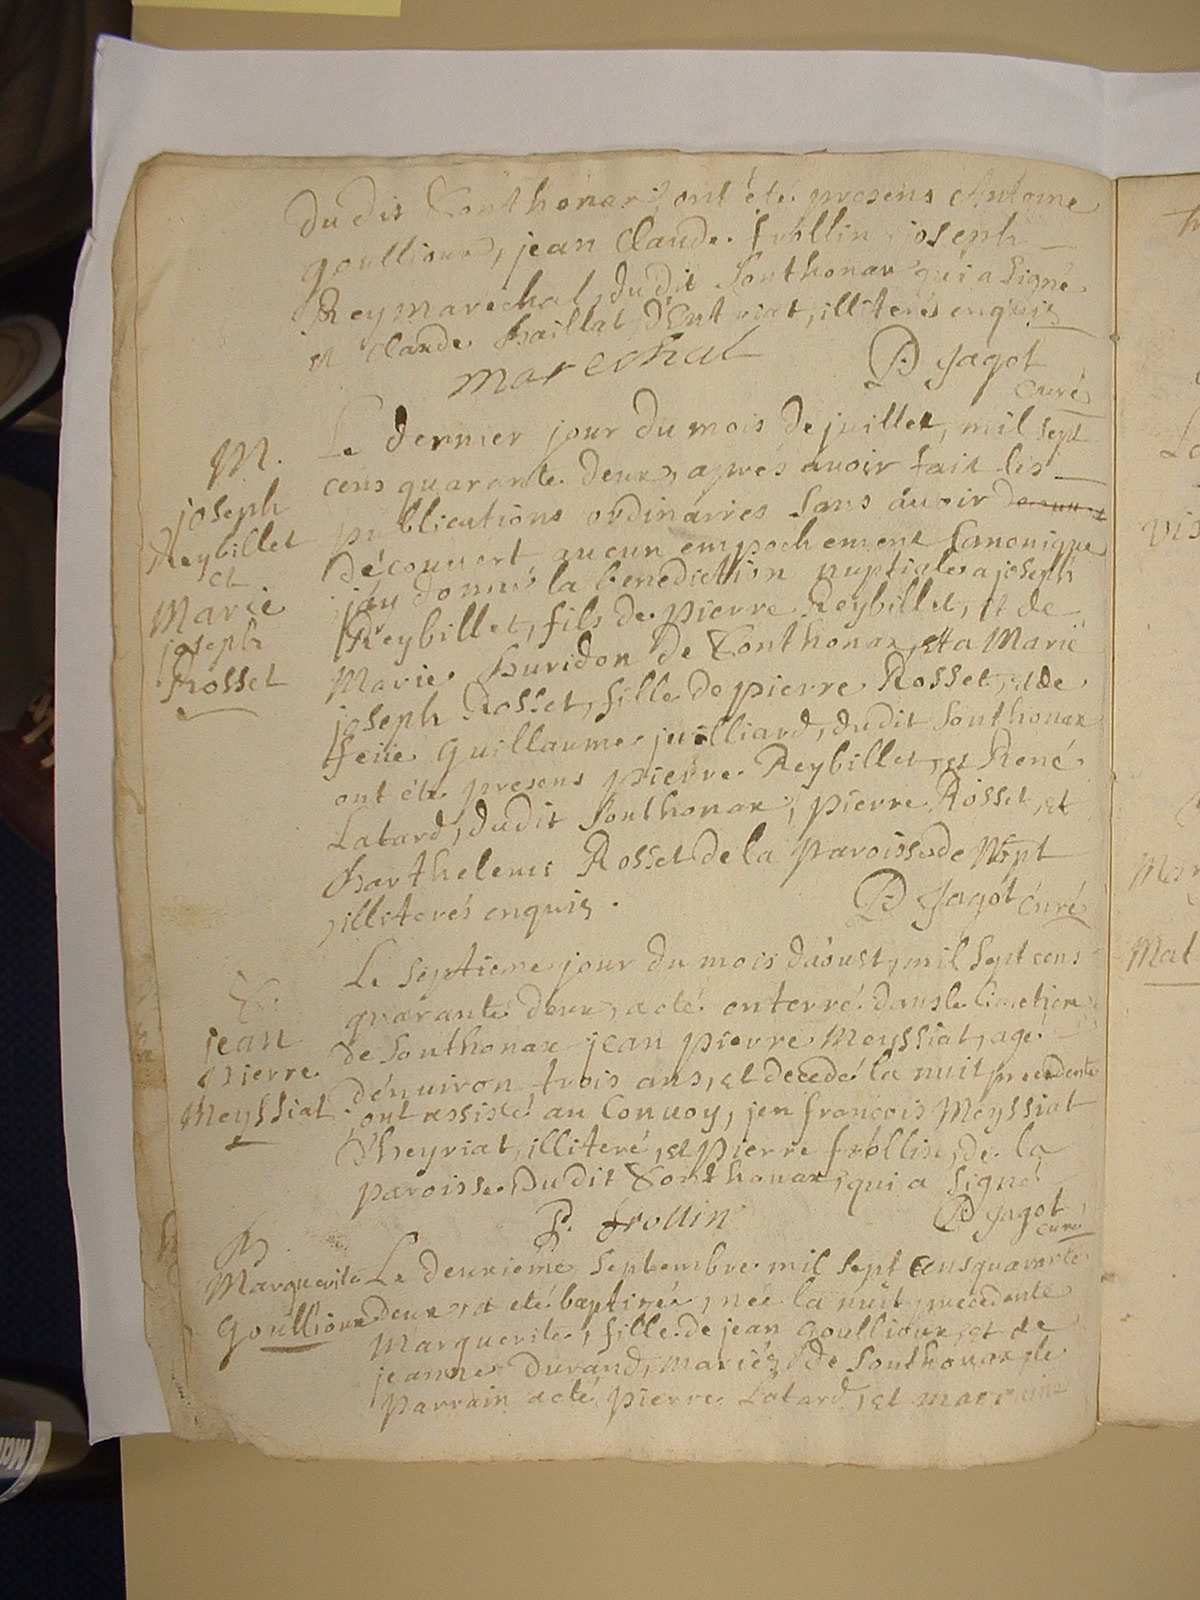 dudit Sonthonax, ont été presens Antoine
goullioux, jean Claude frollin, joseph
Rey marechal, dudit Sonthonax qui a signé
et Claude baillat, d'Entriat, illiterés enquis
marechal
P Jagot
curé
M.
joseph
Reybillet
et
Marie
joseph
Rosset
Le dernier jour du mois de juillet, mil sept
cens quarante deux, aprés avoir fait les
publications ordinaires sans avoir
découvert aucun empechement Canonique
jay donné la benediction nuptiale a joseph
Reybillet, fils de pierre Reybillet, et de
Marie buridon de Sonthonax, et a Marie
joseph Rosset, fille de pierre Rosset, et de
feüe guillaume juilliard, dudit Sonthonax
ont été presens pierre Reybillet, et René
Latard, dudit Sonthonax, pierre Rosset, et
barthelemi Rosset de la paroisse de
illiterés enquis.
P Jagot Curé
jean
pierre
Meyssiat
Le septieme jour du mois d'aoust, mil sept cens
quarante deux, a eté enterré dans le cimetiere
de Sonthonax jean pierre Meyssiat, agé
d'enuiron trois ans, et decedé la nuit precedente
ont assisté au Convoy, jen françois Meyssiat
d'heyriat, illiteré, et pierre frollin, de la
paroisse dudit Sonthonax, qui a signé
P. frollin
P Jagot
curé
B
Marguerite
goullioux
Le deuxieme Septembre mil sept Cens quarante
deux, a eté baptizée, née la nuit precedente
Marguerite, fille de jean goullioux, et de
jeanne Durand, mariés de Sonthonax, le
parrain a eté pierre Latard, et marraine
vis
Mat